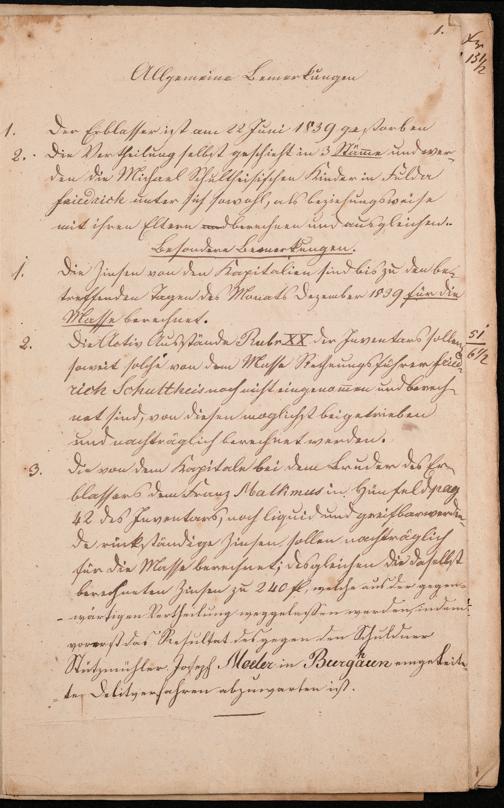 1.
Xr
15 1/2
Allgemeine Bemerkungen
1. Der Erblasser ist am 22 Juni 1839 gestorben
2. Die Vertheilung selbst geschieht in 3 Stämme und wer-
den die Michael Schultheisischen Kinder in Fulda
Friedrich unter sich sowohl, als beziehungsweise
mit ihren Eltern und berechnen und ausgleichen.
Besondere Bemerkungen.
1. Die Zinsen von den Kapitalien sind bis zu den be-
treffenden Tagen des Monats Dezember 1839 für die
Masse berechnet.
2. Die Activ Ausstände Rubr XX des Inventars sollen,
soweit solche von dem Masse Rechnungsführer Fried-
rich Schultheis noch nicht eingenommen und berech-
net sind, von diesem möglichst beigetrieben
und nachträglich berechnet werden.
51
6 1/2
3. Die von dem Kapitale bei dem Bruder des Er-
blassers dem Franz Malkmus in Hünfeld pag
42 des Inventars, noch liquid und greifbar werden-
de rückständige Zinsen sollen nachträglich
für die Masse berechnet; desgleichen die daselbst
berechneten Zinsen zu 240 fl, welche aus der gegen-
wärtigen Vertheilung weggelassen werden, indem
vorerst das Resultat des gegen den Schuldner
Joseph Moder in Burghaun eingeleite-
ten Debitverfahren abzuwarten ist.